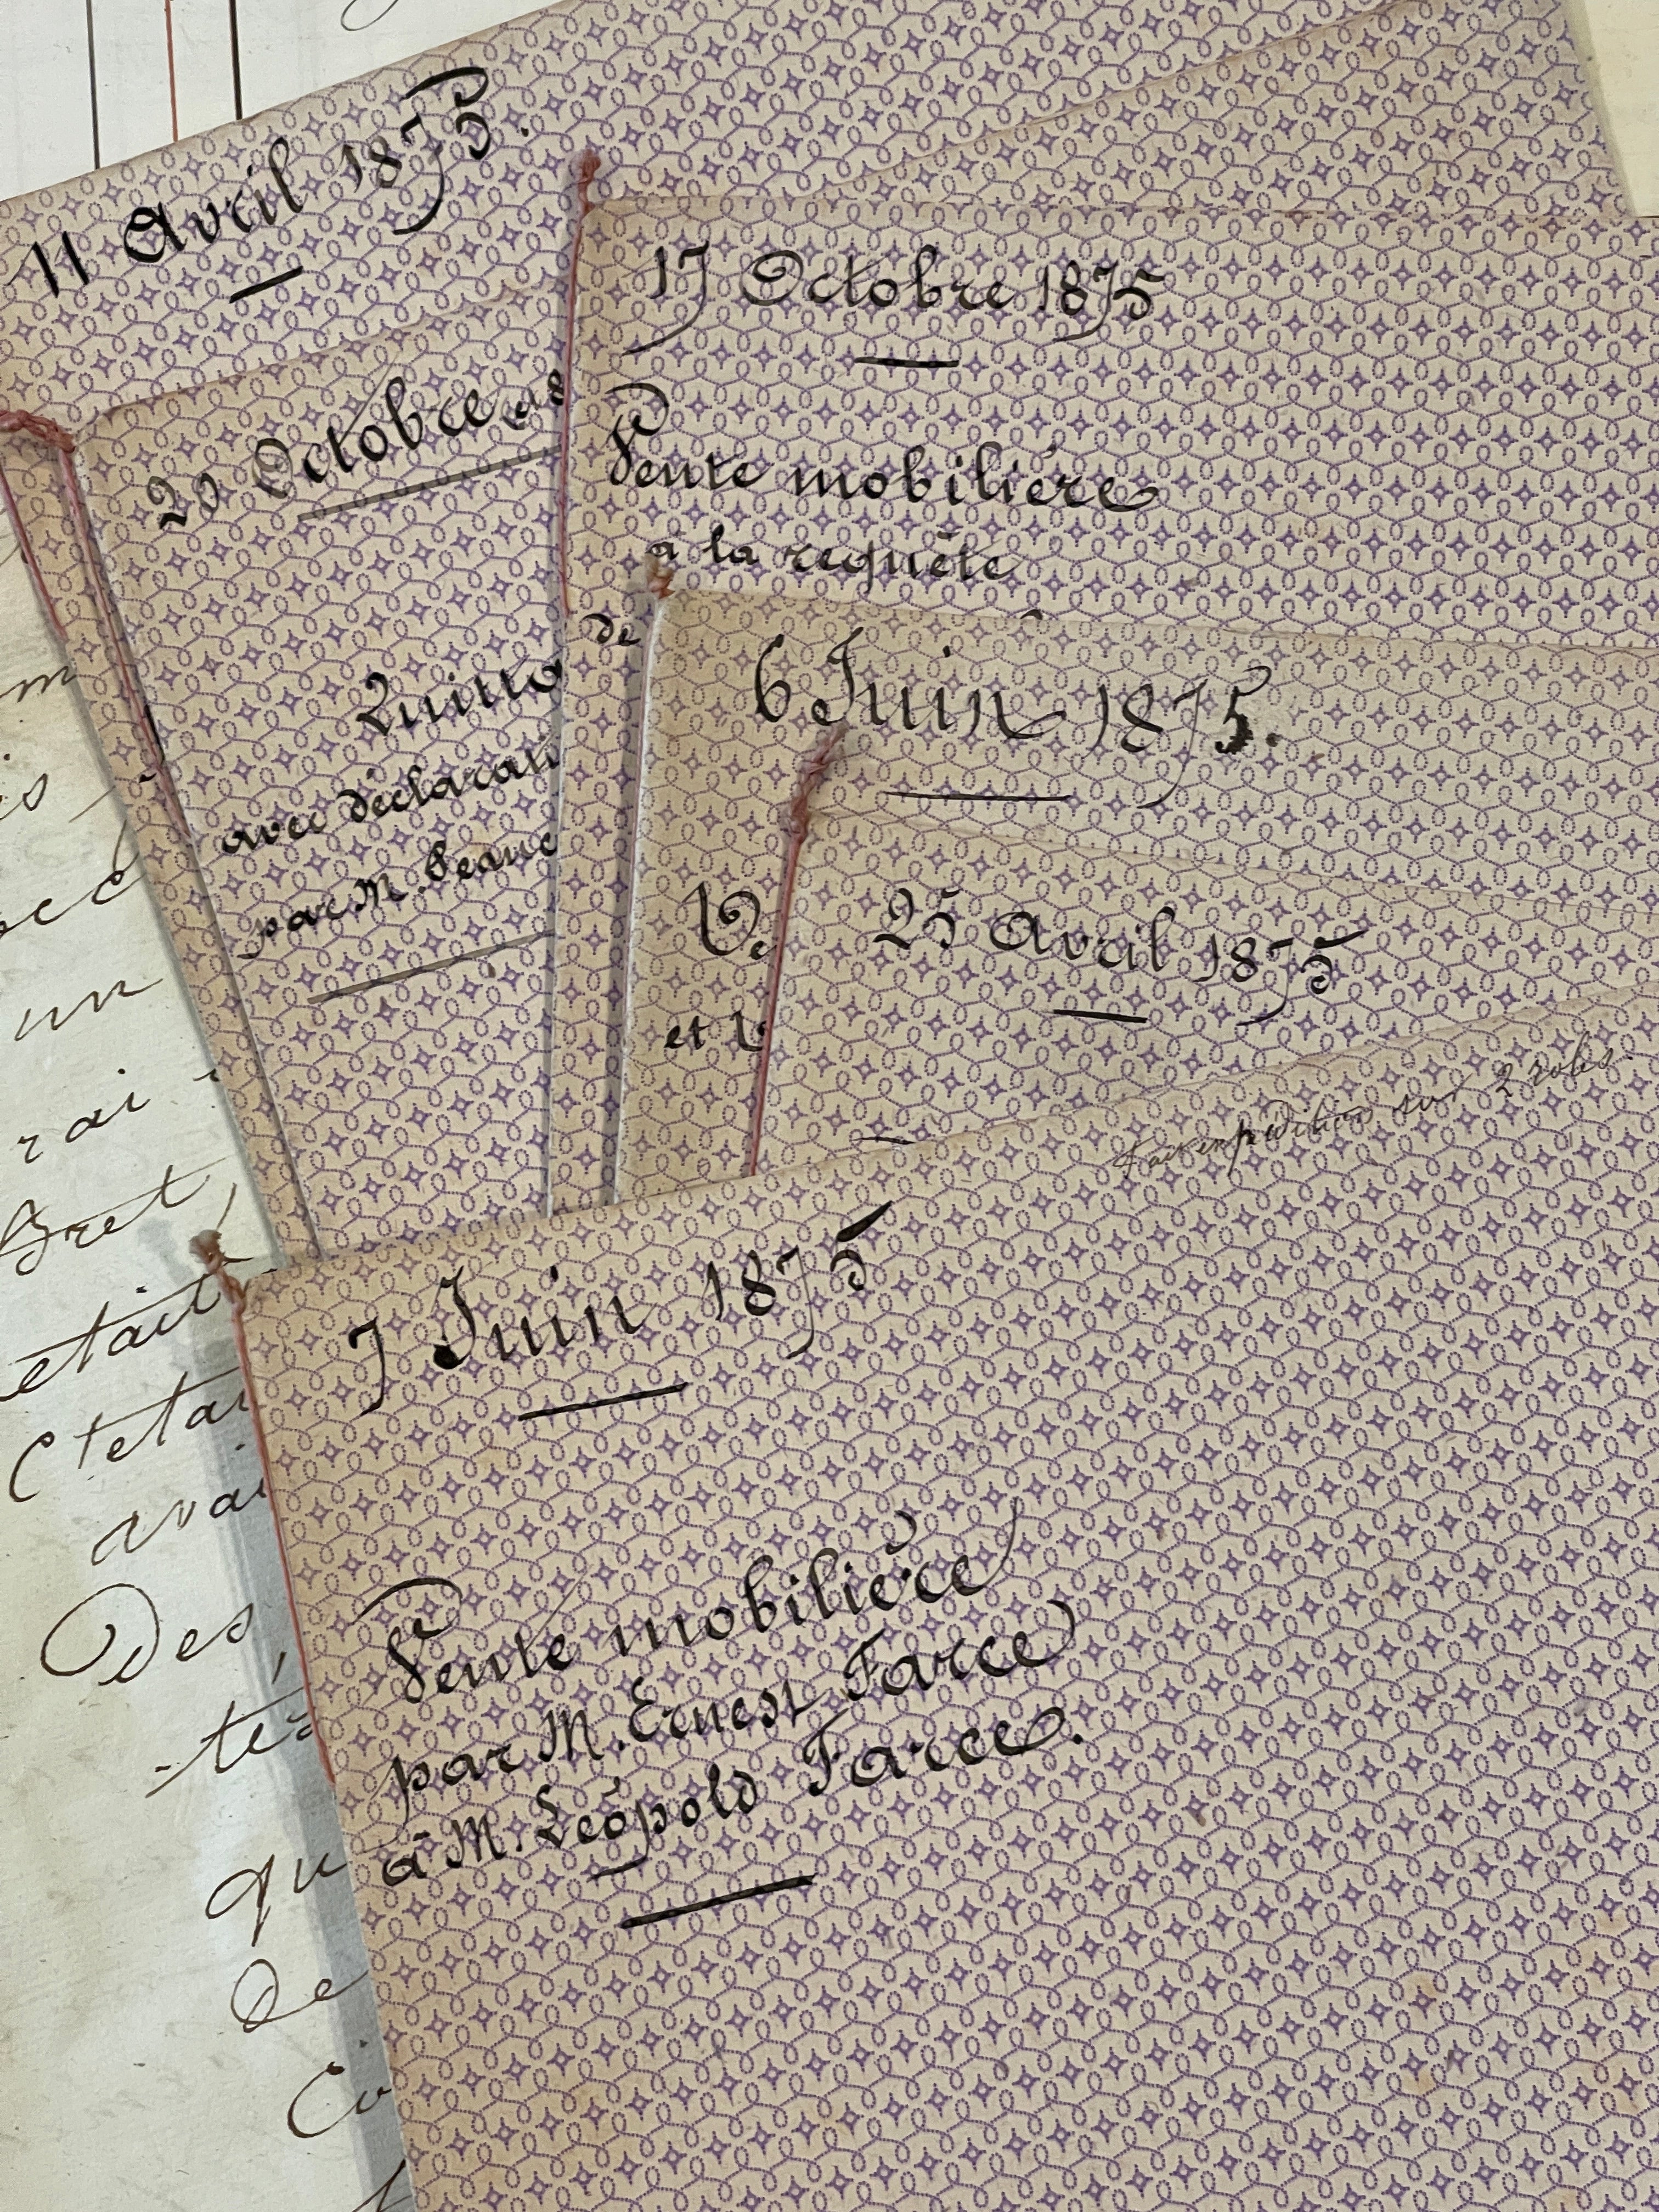 11 Avril 1875.
20 Octobre 18
Quitta
avec déclarati
par M.
17 Octobre 1875
Vente mobilière
à la requête
de
6 Juin 1875.
Ve
et l
25 Avril 1875
expédition sur 2 roles.
7 Juin 1875
Vente mobilière
par M. Ernest Farce
à M. Léopold Farce.
m
is
un
rai
Bret,
était
C'étai
avai
Des
-tés
qu
De
Co